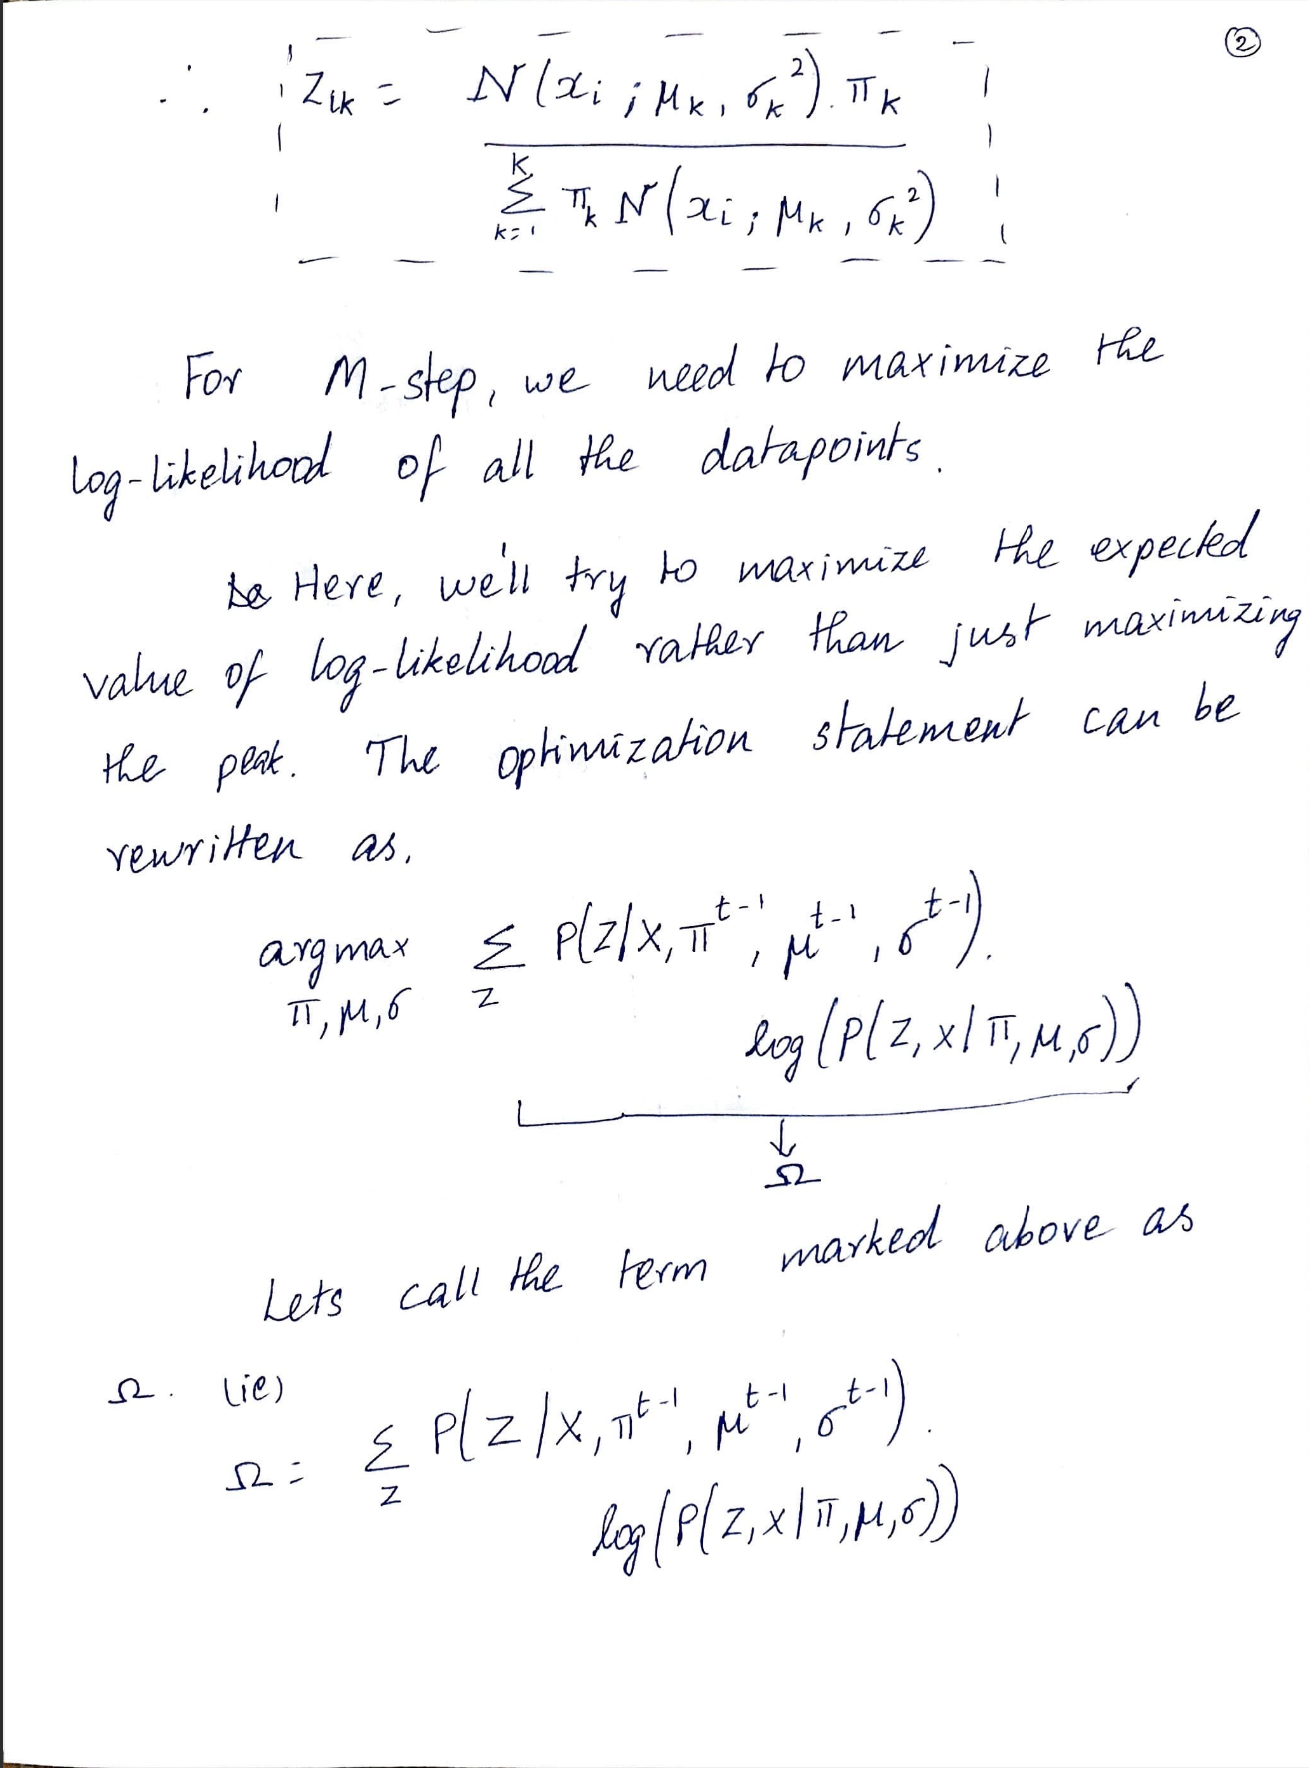 ②
∴ Zik = N(xi ; μk, σk²). πk
K
Σ πk N(xi ; μk, σk²)
k=1
For M-step, we need to maximize the
log-likelihood of all the datapoints.
Here, we'll try to maximize the expected
value of log-likelihood rather than just maximizing
the peak. The optimization statement can be
rewritten as,
argmax Σ P(Z/X, π^t-1, μ^t-1, σ^t-1).
π, μ, σ Z
log(P(Z, X|π, μ, σ))
↓
Ω
Lets call the term marked above as
Ω. (ie)
Ω = Σ P(Z/X, π^t-1, μ^t-1, σ^t-1).
Z
log(P(Z, X|π, μ, σ))